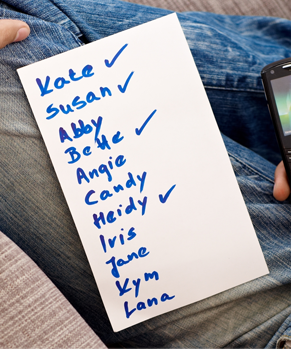 Kate ✓
Susan ✓
Abby
Bette ✓
Angie
Candy
Heidy ✓
Iris
Jane
Kym
Lana